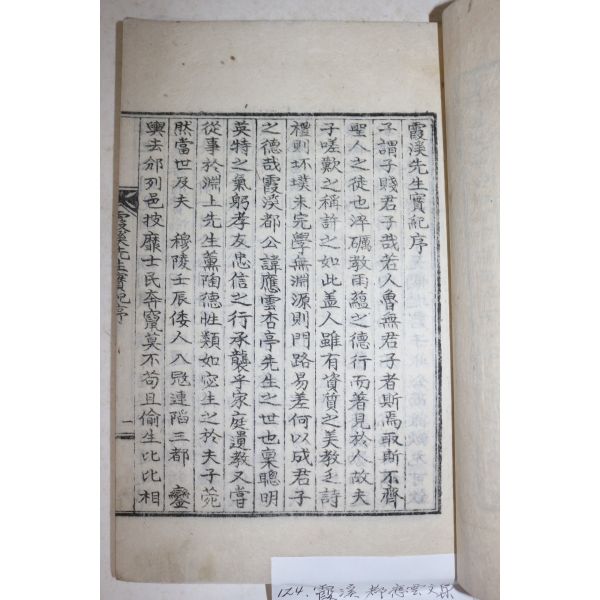 霞溪先生實紀序
子謂子賤君子哉若人魯無君子者斯焉取斯不齊
聖人之徒也淬礪教雨蘊之德行而著見於人故夫
子嗟歎之稱許之如此盖人雖有資質之美教乏詩
禮則坏璞未完學無淵源則門路易差何以成君子
之德哉霞溪都公諱應雲杏亭先生之世也稟聰明
英特之氣躬孝友忠信之行承襲乎家庭遺教又嘗
從事於淵上先生薰陶德性類如宓生之於夫子
然當世及夫 穆陵壬辰倭人入寇連陷三都 鑾
輿去邠列邑披靡士民奔竄莫不苟且偷生比比相
霞溪先生實紀序
一
124. 霞溪 都應雲文集